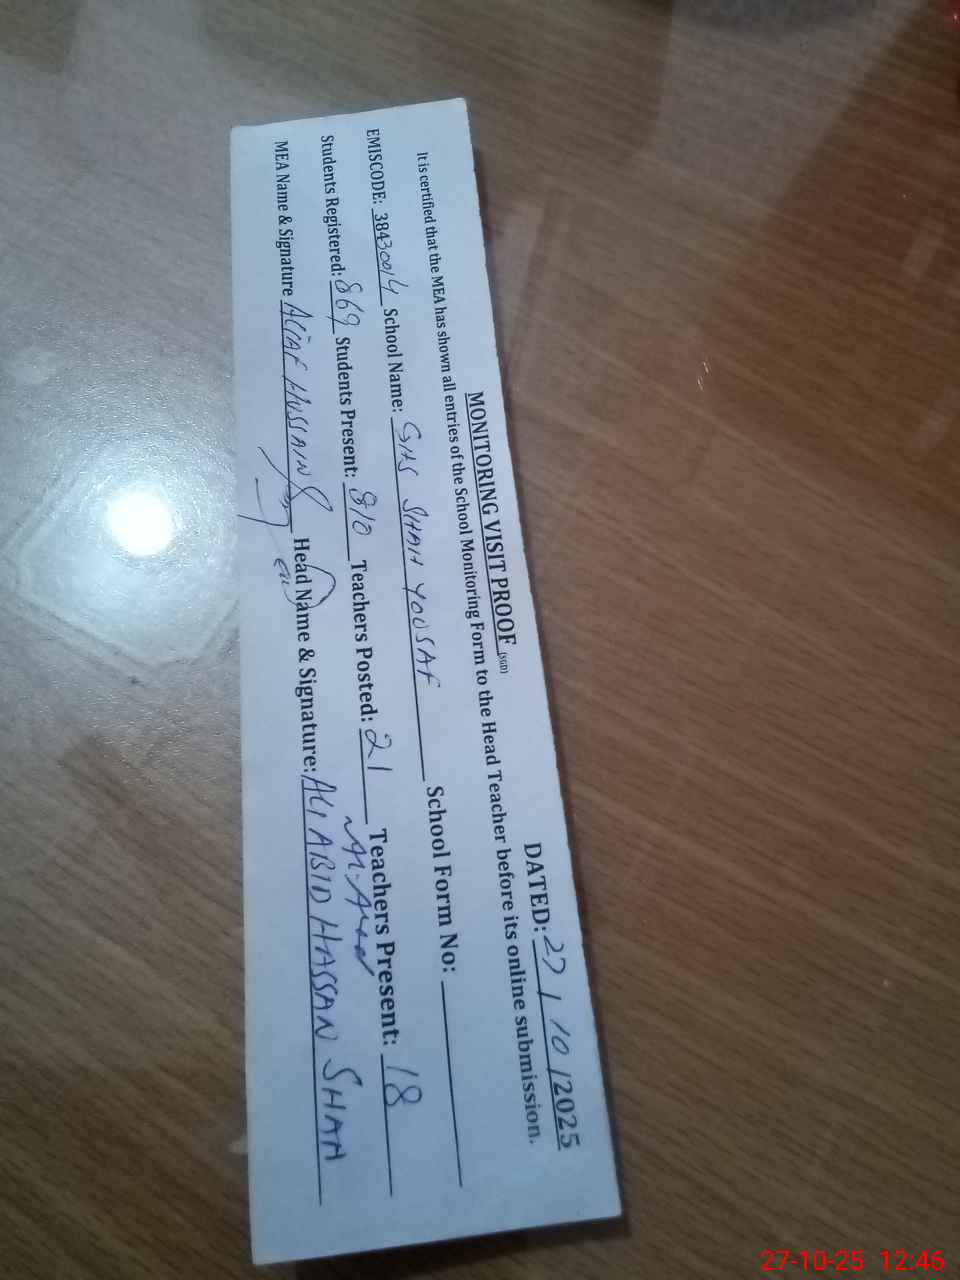 MONITORING VISIT PROOF (SGD)
DATED: 27 / 10 /2025
It is certified that the MEA has shown all entries of the School Monitoring Form to the Head Teacher before its online submission.
EMISCODE: 38430014 School Name: GHS SHAH YOUSAF School Form No:
Students Registered: 869 Students Present: 810 Teachers Posted: 21 Teachers Present: 18
MEA Name & Signature HUSSAIN Head Name & Signature: ALI ABID HASSAN SHAH
27-10-25 12:46